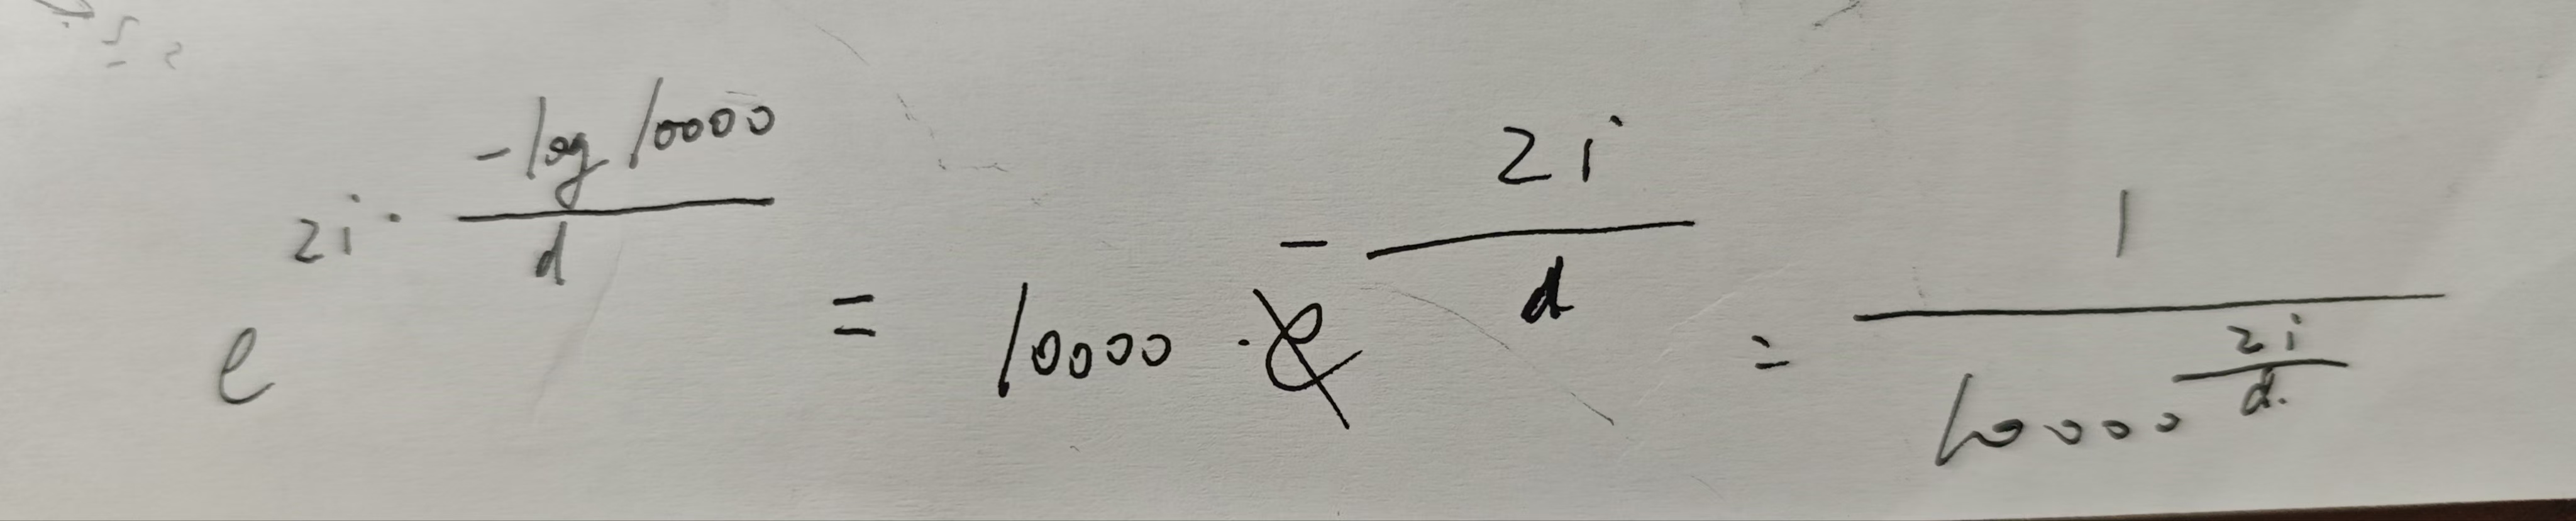 e^{2i · \frac{-log 10000}{d}} = 10000^{-\frac{2i}{d}} = \frac{1}{10000^{\frac{2i}{d}}}